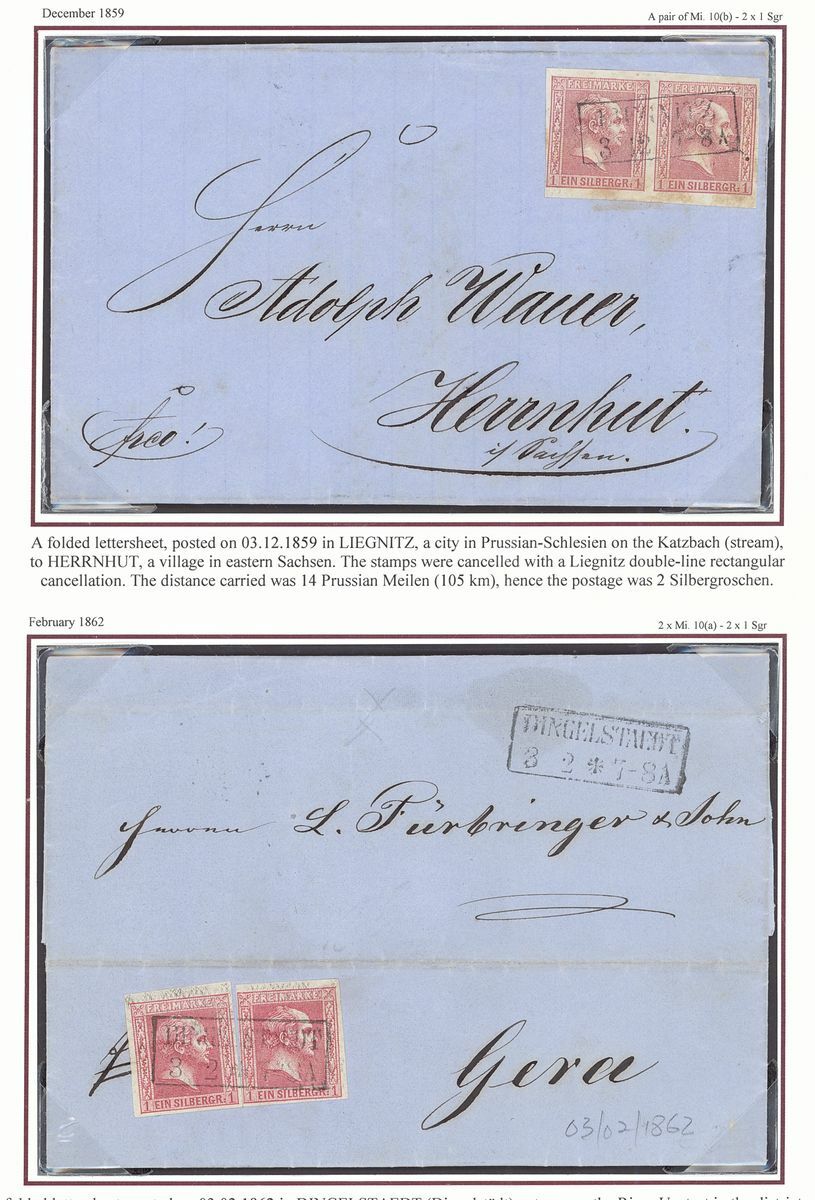 December 1859
A pair of Mi. 10(b) - 2 x 1 Sgr
FREIMARKE FREIMARKE
LIEGNITZ
3 12 7-8A
1 EIN SILBERGR: 1 1 EIN SILBERGR: 1
Herrn
Adolph Wauer,
Herrnhut.
i/ Sachsen.
frco!
A folded lettersheet, posted on 03.12.1859 in LIEGNITZ, a city in Prussian-Schlesien on the Katzbach (stream),
to HERRNHUT, a village in eastern Sachsen. The stamps were cancelled with a Liegnitz double-line rectangular
cancellation. The distance carried was 14 Prussian Meilen (105 km), hence the postage was 2 Silbergroschen.
February 1862
2 x Mi. 10(a) - 2 x 1 Sgr
DINGELSTAEDT
3 2 * 7-8A
Herren L. Fürbringer & Sohn
FREIMARKE FREIMARKE
3 2
1 EIN SILBERGR: 1 1 EIN SILBERGR: 1
Gera
03/02/1862